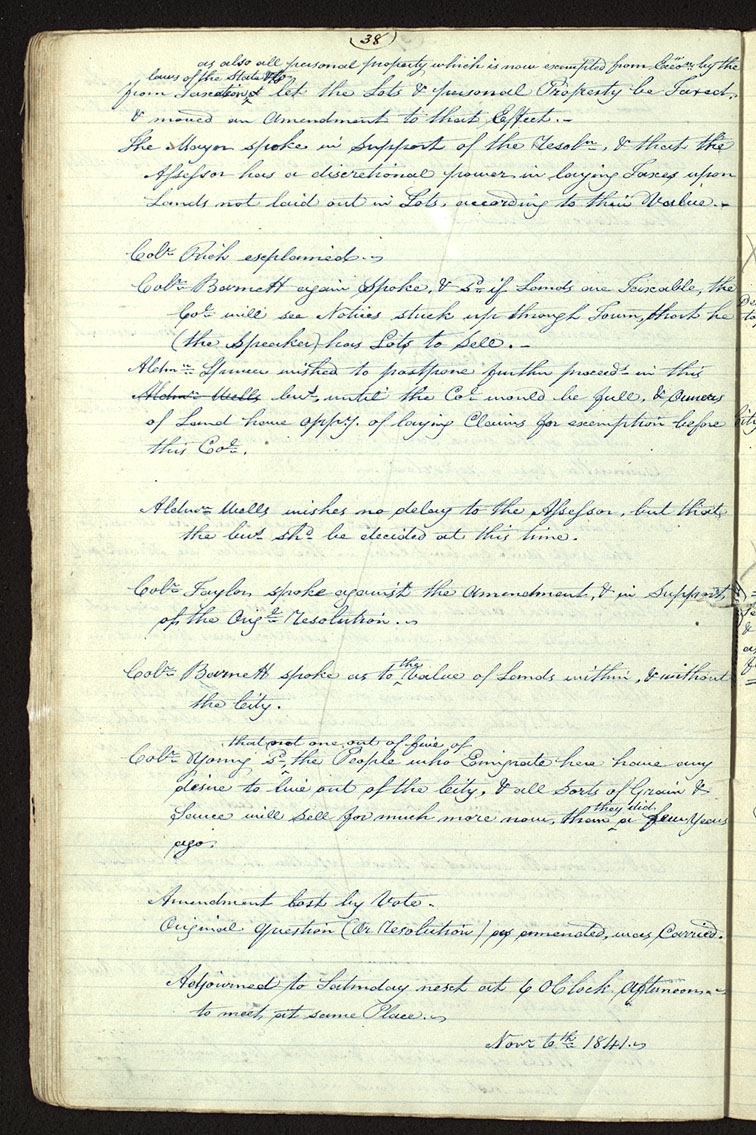 38
as also all personal property which is now exempted from Exon. by the
laws of the State &
from Taxation, & let the Lots & personal Property be Taxed,
& moved an Amendment to that Effect.-
The Mayor spoke in Support of the Resoln., & that the
Assessor has a discretional power in laying Taxes upon
Lands not laid out in Lots, according to their Value.-
Colr. Rich explained.
Colr. Barnett again Spoke, & Sd. if Lands are Taxable, the
Col. will see Notices stuck up through Town, that he
(the Speaker) has Lots to Sell.-
Aldn. Spencer wished to postpone further proceeds. in this
Aldn. Wells but, until the Col. would be full, & Owners
of Land have oppy. of laying Claims for exemption before
this Col.
Aldn. Wells wishes no delay to the Assessor, but that
the bus. shd. be decided at this time.
Colr. Taylor spoke against the Amendment, & in Support
of the Origl. Resolution.
Colr. Barnett spoke as to the Value of Lands within, & without
the City.
that not one out of five of
Colr. Young Sd., the People who Emigrate here have any
desire to live out of the City, & all Sorts of Grain &
they did
Sauce will sell for much more now, than a few Years
ago.
Amendment Lost by Vote.
Original question (Or Resolution) as amended, was Carried.
Adjourned to Saturday next at 6 O'Clock, Afternoon
to meet, at same Place.
Novr. 6th. 1841.